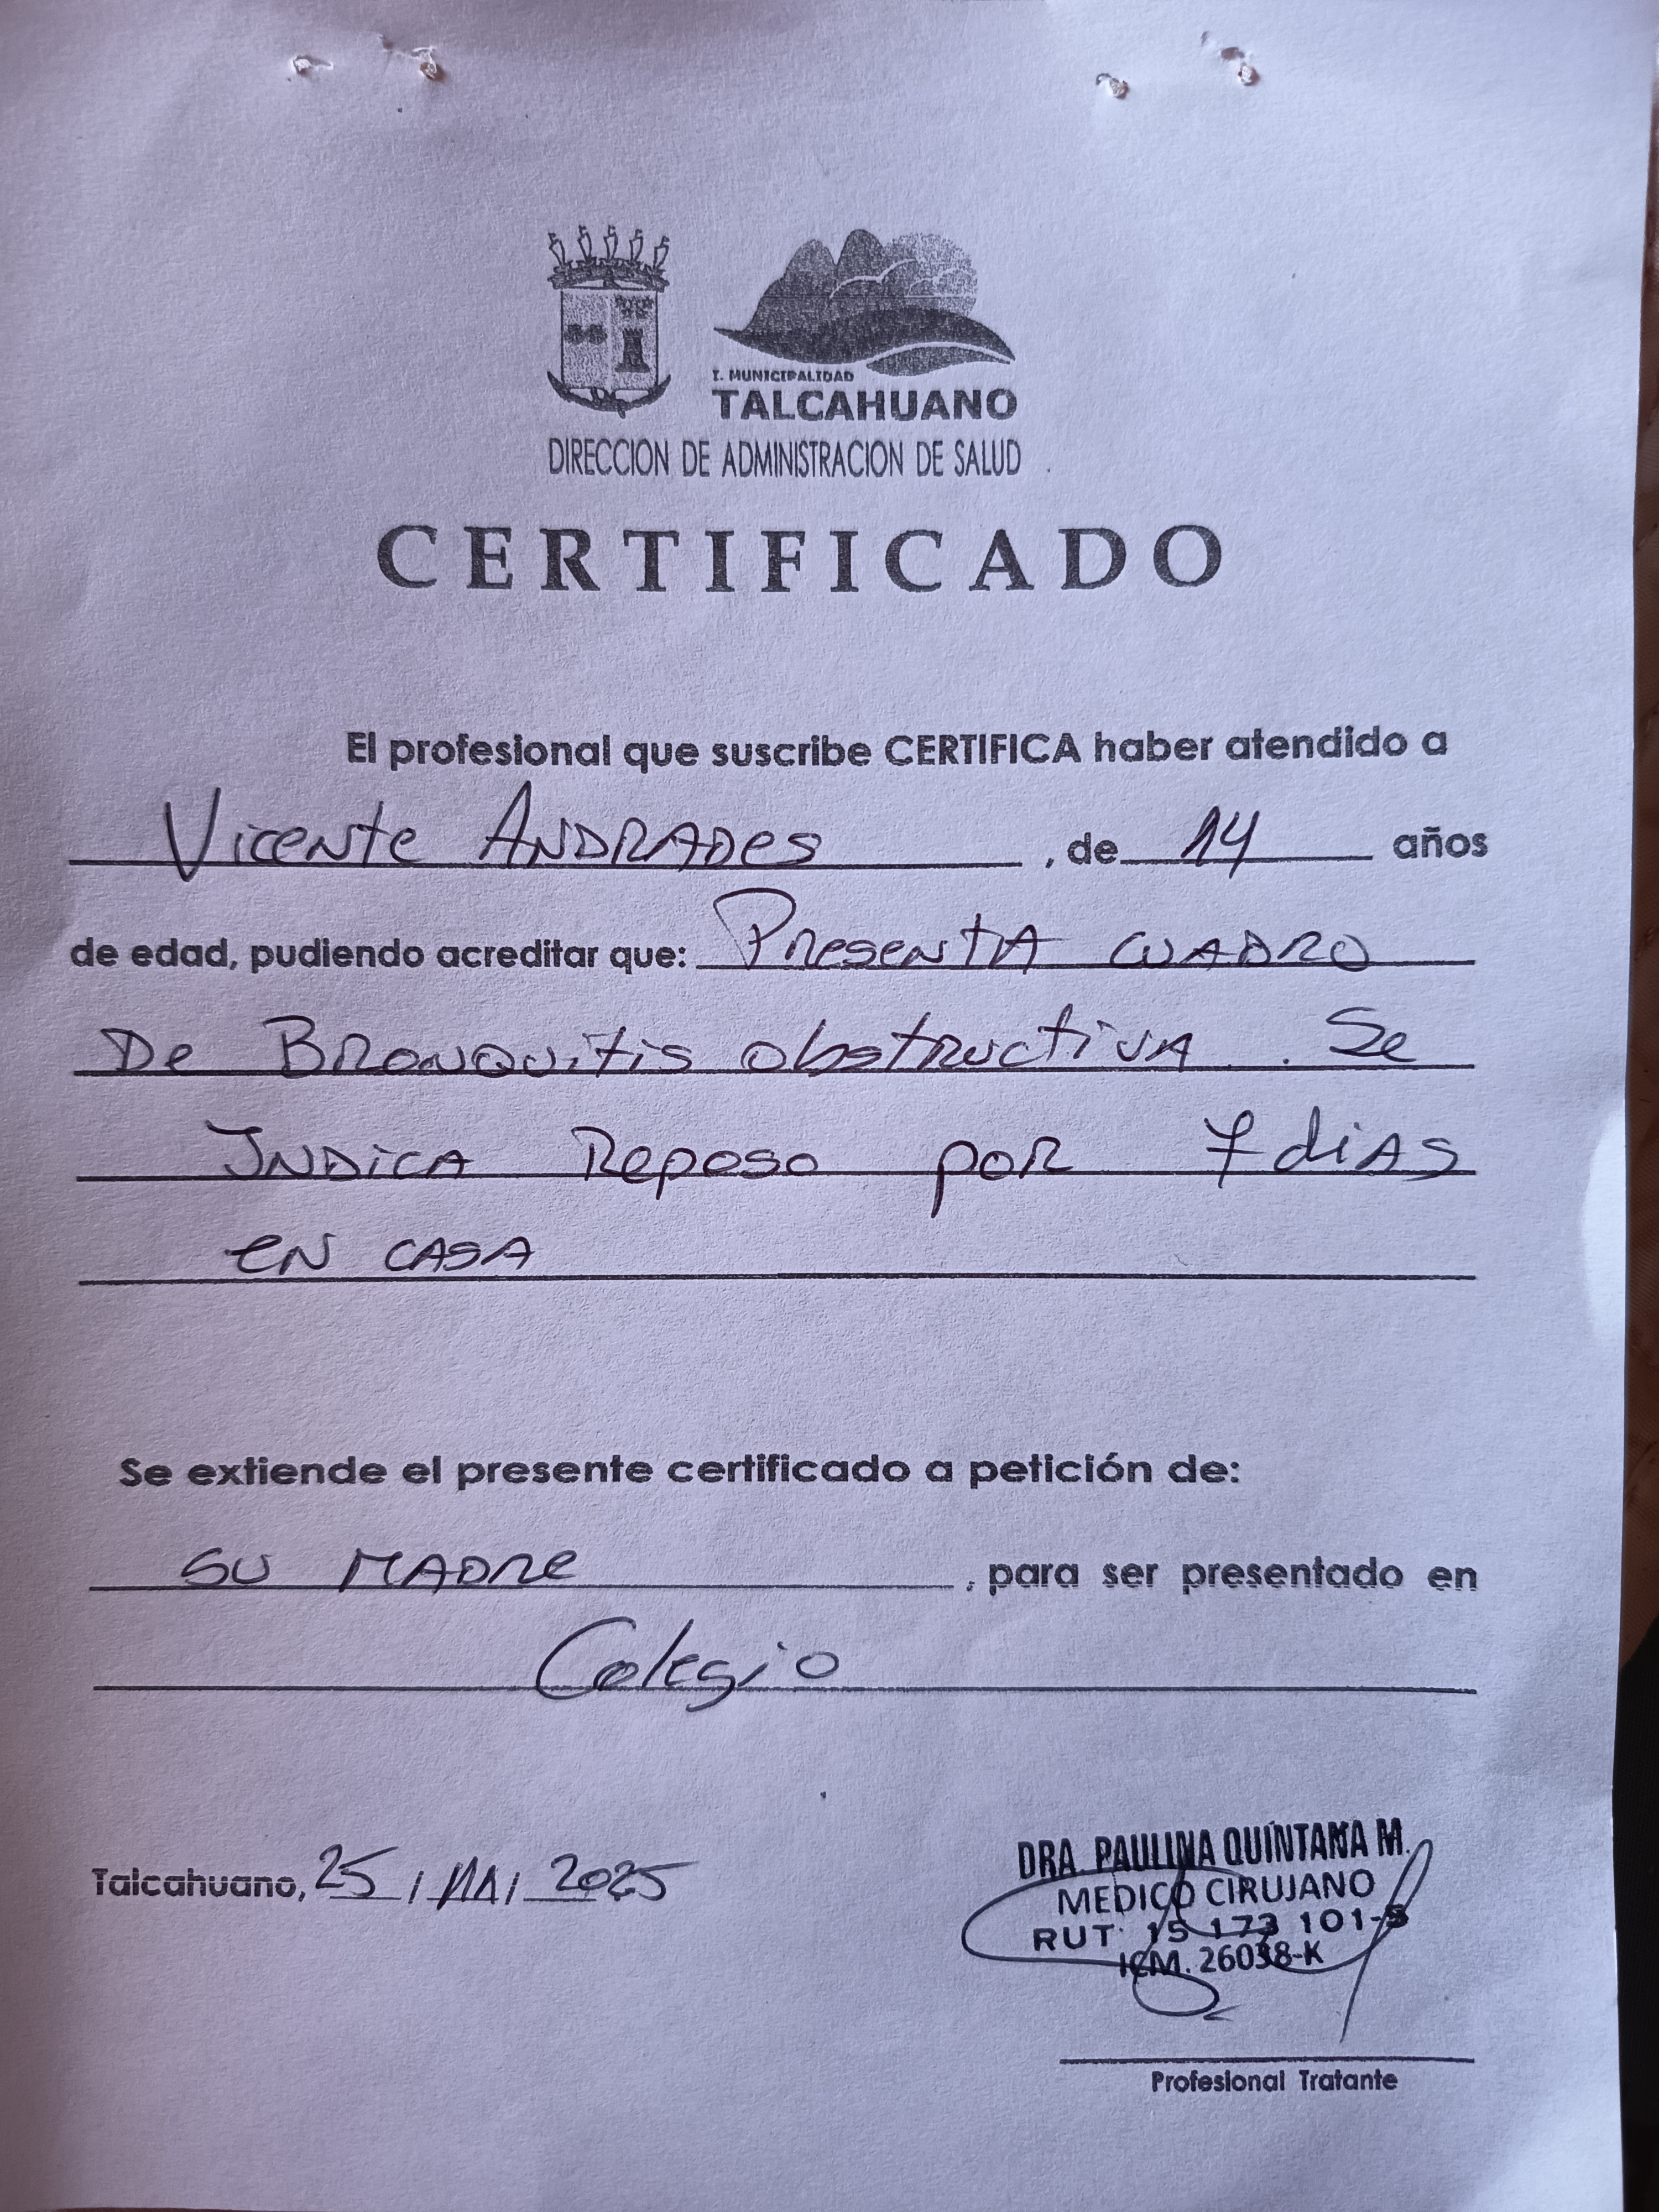 I. MUNICIPALIDAD
TALCAHUANO
DIRECCION DE ADMINISTRACION DE SALUD
CERTIFICADO
El profesional que suscribe CERTIFICA haber atendido a
Vicente ANDRADES, de 14 años
de edad, pudiendo acreditar que: Presenta cuadro
De Bronquitis obstructiva. Se
Indica Reposo por 7 dias
en casa
Se extiende el presente certificado a petición de:
su madre, para ser presentado en
Colegio
Talcahuano, 25 / / 2025
DRA. PAULINA QUINTANA M.
MEDICO CIRUJANO
RUT: 15 173 101-
ICM. 26038-K
Profesional Tratante